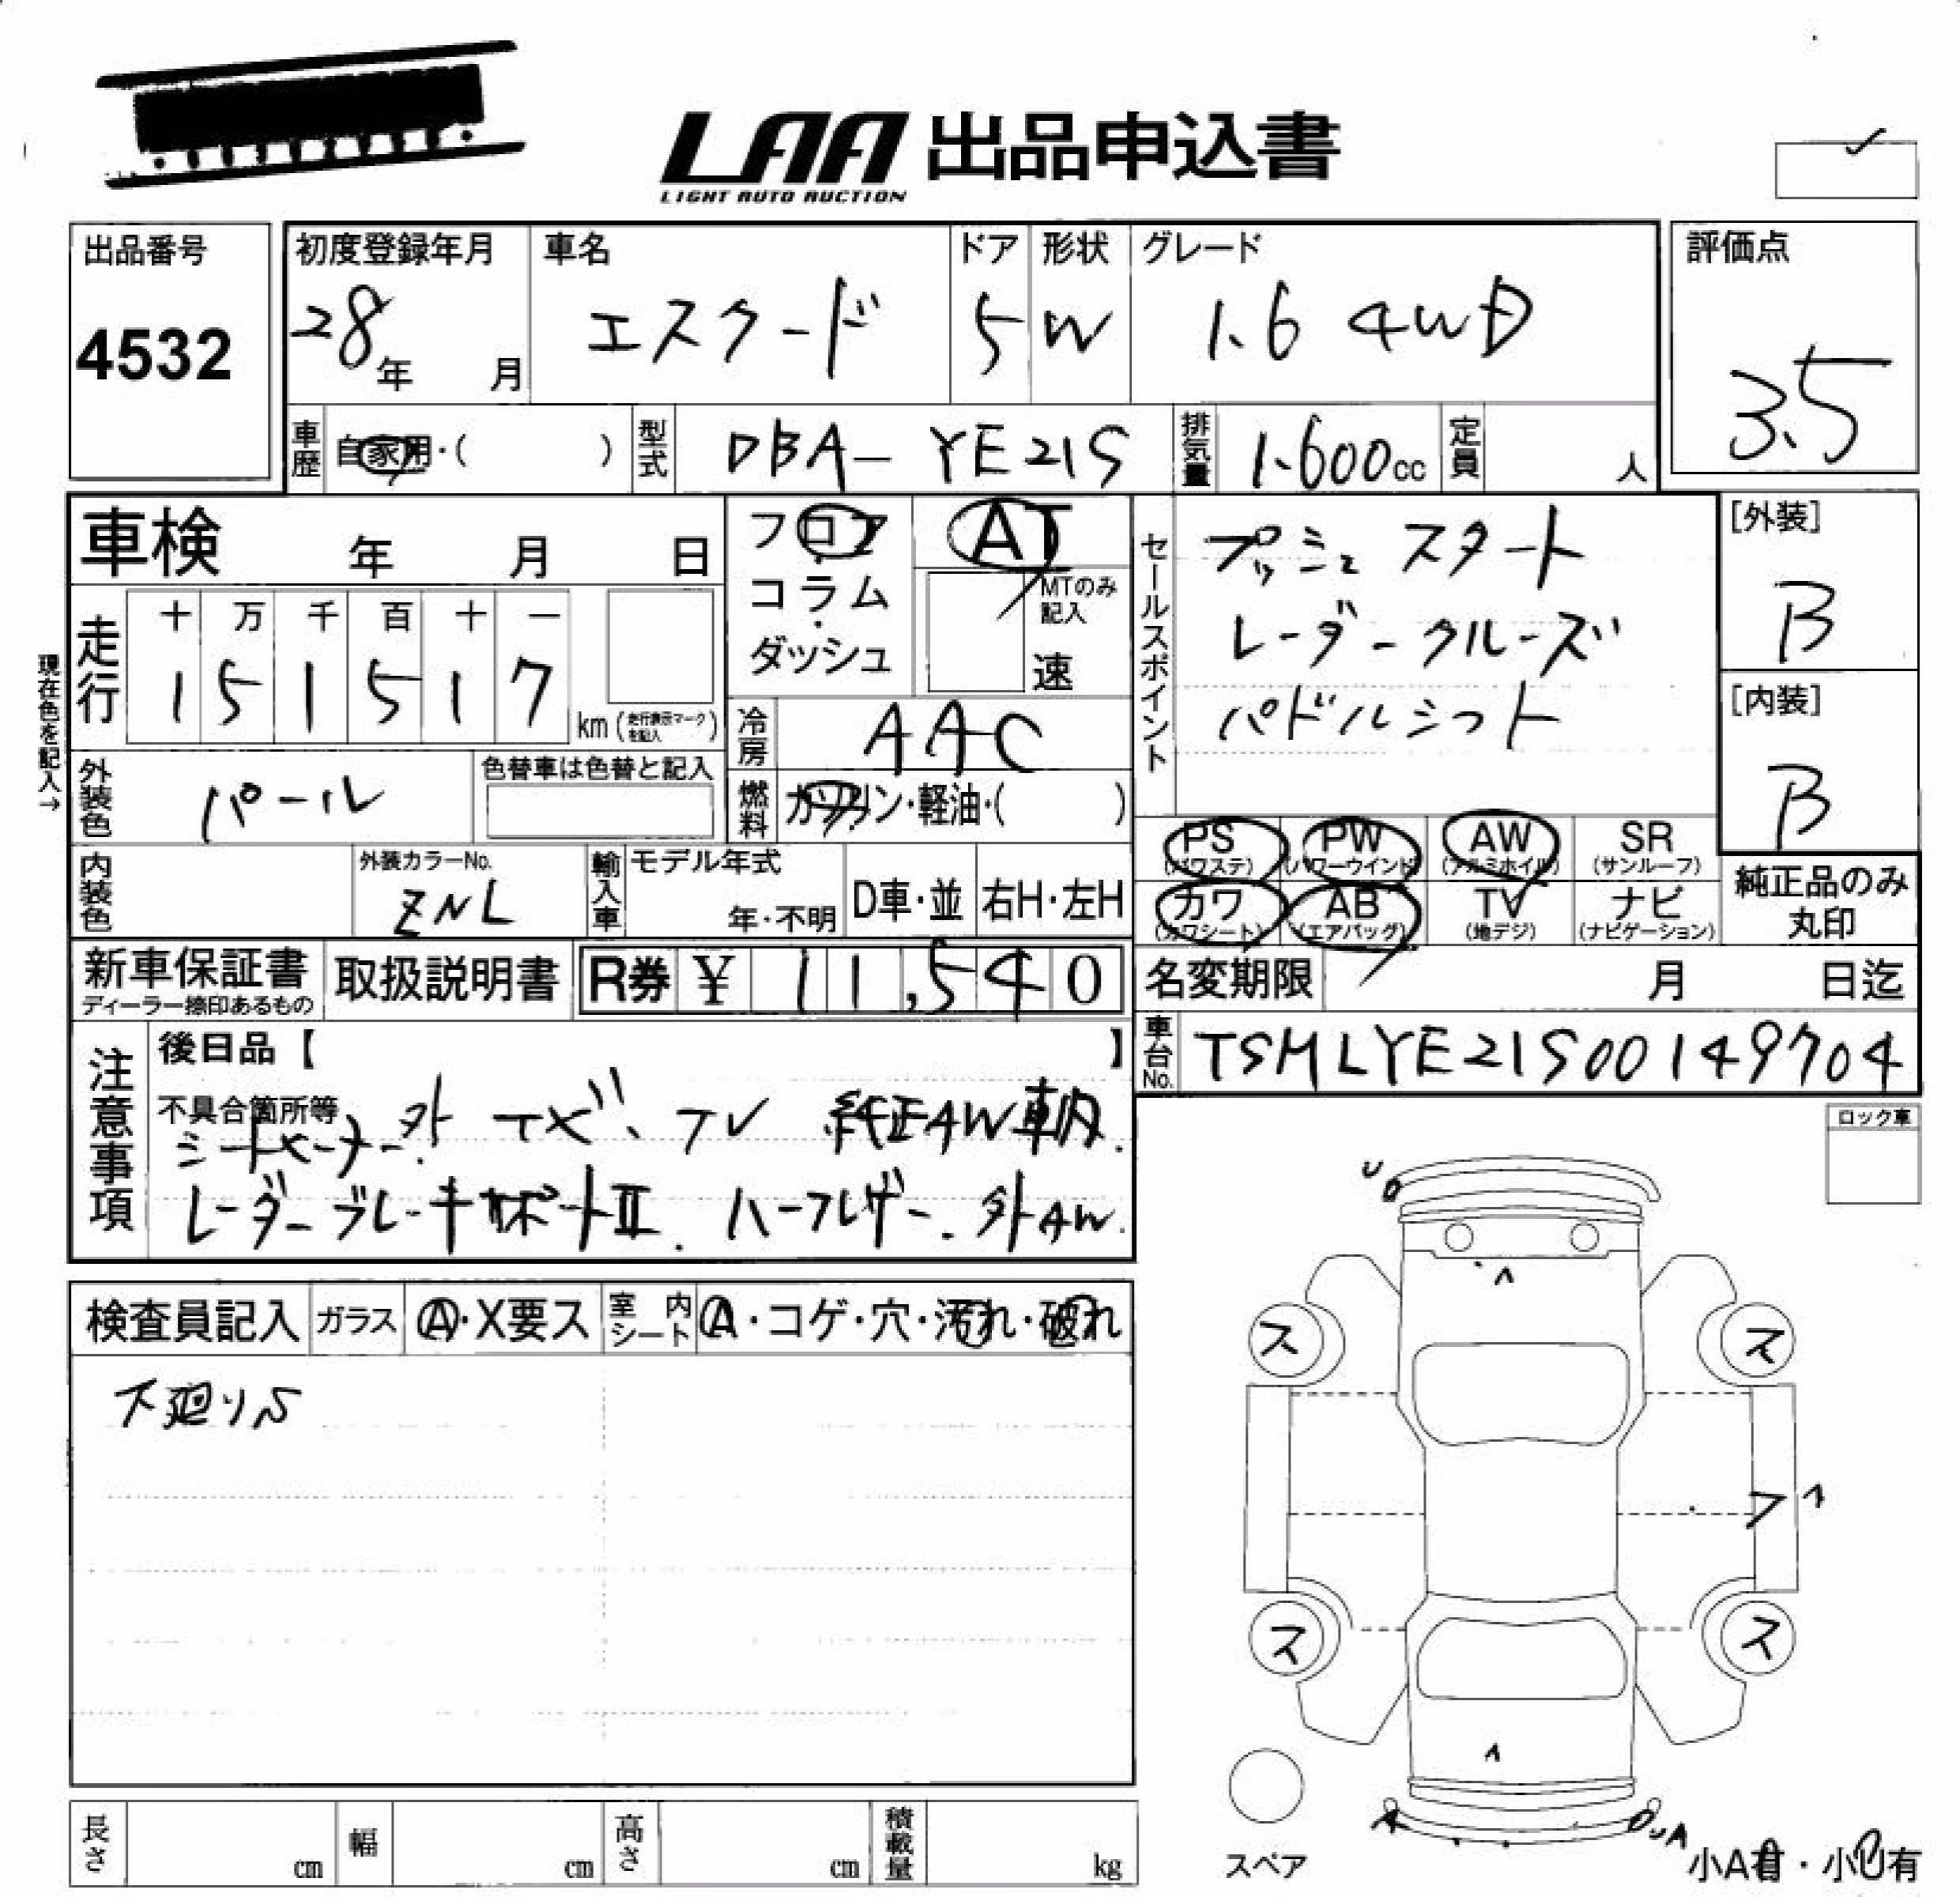 LAA 出品申込書
LIGHT AUTO AUCTION
出品番号
4532
初度登録年月
28年 月
車名
エスクード
ドア
5
形状
W
グレード
1.6 4WD
評価点
3.5
車歴
自家用・( )
型式
DBA-YE21S
排気量
1.600cc
定員
人
車検 年 月 日
フロア
・
コラム
・
ダッシュ
AT
MTのみ
記入
速
セールスポイント
プッシュスタート
レーダークルーズ
パドルシフト
[外装]
B
[内装]
B
現在色を記入→
走行
十 万 千 百 十 一
1 5 1 5 1 7
km (走行表示マークを記入)
冷房
AAC
外装色
パール
色替車は色替と記入
燃料
ガソリン・軽油・( )
PS
(パワステ)
PW
(パワーウインド)
AW
(アルミホイル)
SR
(サンルーフ)
カワ
(カワシート)
AB
(エアバッグ)
TV
(地デジ)
ナビ
(ナビゲーション)
純正品のみ
丸印
内装色
外装カラーNo.
ZNL
輸入車
モデル年式
年・不明
D車・並
右H・左H
新車保証書
ディーラー捺印あるもの
取扱説明書
R券 ¥ 11,540
名変期限 月 日迄
車台No.
TSMLYE21S00149704
注意事項
後日品【 】
不具合箇所等
シートヒーター. 外 ナビ、TV 純正AW車内.
レーダーブレーキサポートⅡ. ハーフレザー. 外AW.
ロック車
検査員記入
ガラス
A・X要ス
室内シート
A・コゲ・穴・汚れ・破れ
下廻りS
U
^
ス
ス
フ ^
ス
ス
^
A
U A
スペア
小A有・小U有
長さ
cm
幅
cm
高さ
cm
積載量
kg